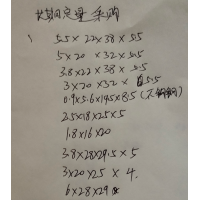 长期定量采购
5.5 × 22 × 38 × 5.5
5 × 20 × 32 × 5.5
3.8 × 22 × 38 × 5.5
3 × 20 × 32 × 5.5
0.9 × 5.6 × 14.5 × 8.5 (不锈钢)
2.5 × 18 × 25 × 5
1.8 × 16 × 20
3.8 × 28 × 29.5 × 5
3 × 20 × 25 × 4.
6 × 28 × 29